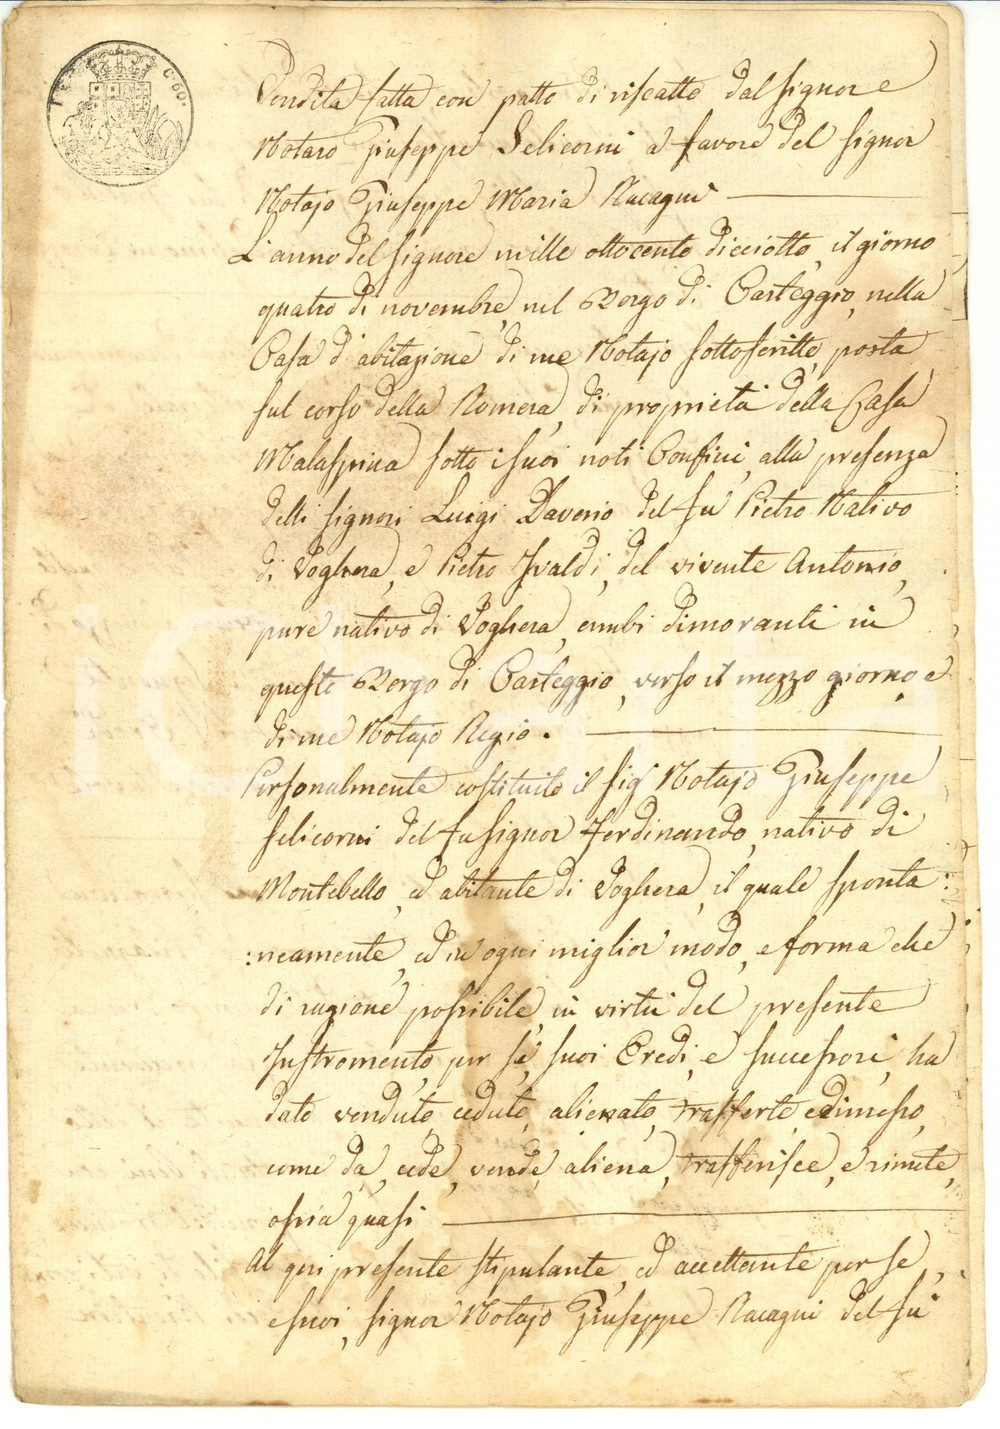 C. 60.
Vendita fatta con patto di riscatto dal signore
Notaro Giuseppe Selicorni a favore del signor
Notajo Giuseppe Maria Racagni
L'anno del signore mille ottocento dicciotto, il giorno
quatro di novembre, nel Borgo di Casteggio, nella
Casa d'abitazione di me Notajo sottoscritto, posta
sul corso della Romera, di proprietà della Casa
Malaspina sotto i suoi noti Confini, alla presenza
delli signori Luigi Daverio del fu Pietro Nativo
di Voghera, e Pietro Ivaldi, del vivente Antonio,
pure nativo di Voghera, ambi dimoranti in
questo Borgo di Casteggio, verso il mezzo giorno e
di me Notajo Regio.
Personalmente costituito il sig.r Notajo Giuseppe
Selicorni del fu signor Ferdinando, nativo di
Montebello, ed abitante di Voghera, il quale sponta:
:neamente, ed in ogni miglior modo, e forma che
di ragione possibile, in virtù del presente
Instromento, per sé, suoi Eredi, e successori, ha
dato venduto, ceduto, alienato, trasferto, e dimesso,
come da, cede, vende, aliena, trasferisce, e rimete,
ossia quasi
Al qui presente stipulante, ed accettante per se,
e suoi, signor Notajo Giuseppe Racagni del fu